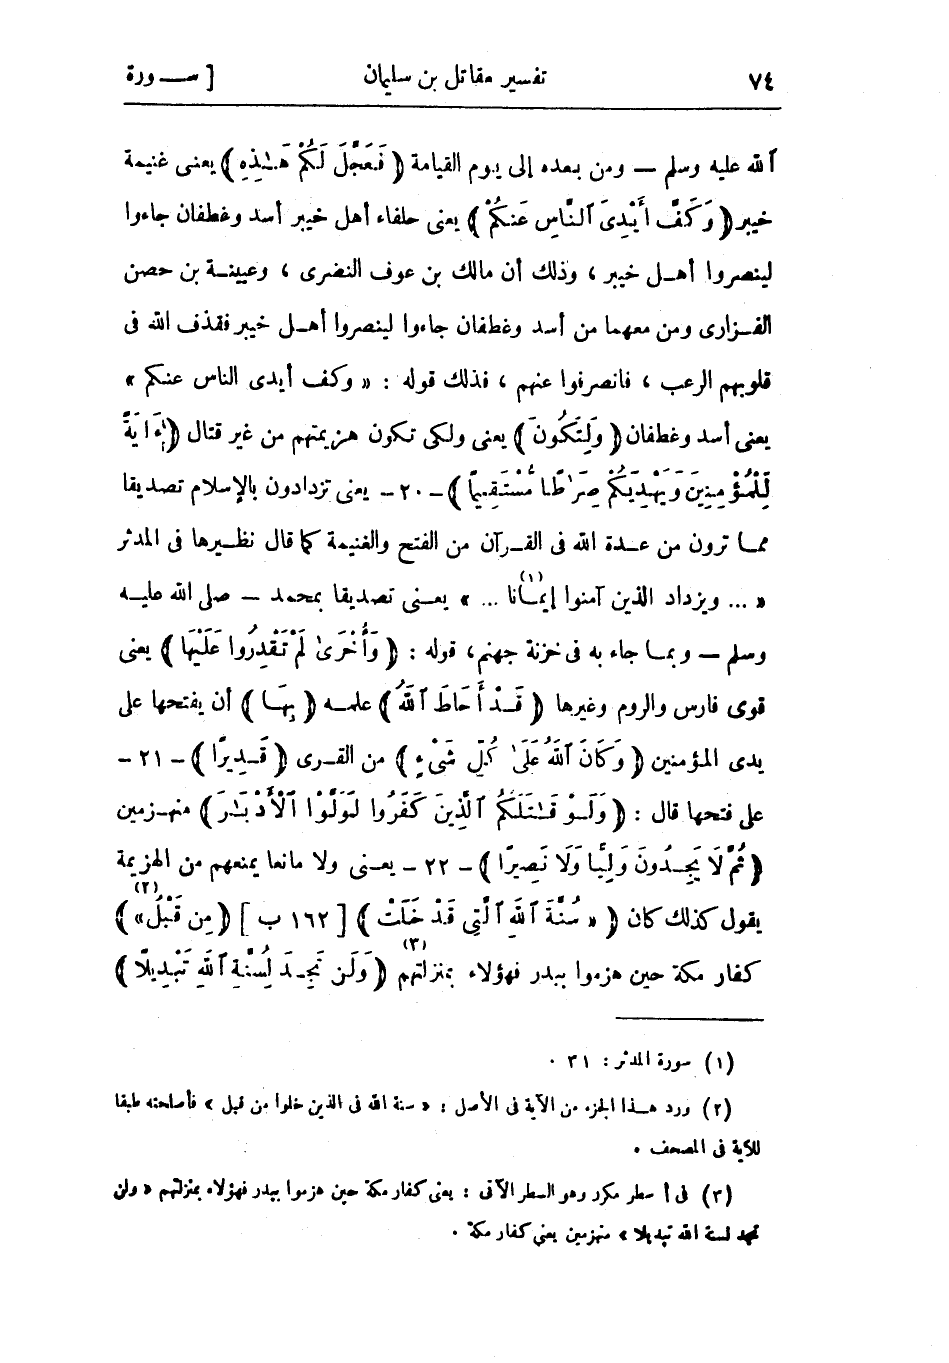 ٧٤ تفسير مقاتل بن سليمان [ ســورة
الله عليه وسلم — ومن بعده إلى يوم القيامة ﴿ فَعَجَّلَ لَكُمْ هَـٰذِهِ ﴾ يعنى غنيمة
خيبر ﴿ وَكَفَّ أَيْدِىَ ٱلنَّاسِ عَنكُمْ ﴾ يعنى حلفاء أهل خيبر أسد وغطفان جاءوا
لينصروا أهـل خيبر ، وذلك أن مالك بن عوف النضرى ، وعيينـة بن حصن
الفـزارى ومن معهما من أسد وغطفان جاءوا لينصروا أهـل خيبر فقذف الله فى
قلوبهم الرعب ، فانصرفوا عنهم ، فذلك قوله : « وكف أيدى الناس عنكم »
يعنى أسد وغطفان ﴿ وَلِتَكُونَ ﴾ يعنى ولكى تكون هزيمتهم من غير قتال ﴿ ءَايَةً
لِّلْمُؤْمِنِينَ وَيَهْدِيَكُمْ صِرَٰطًا مُّسْتَقِيمًا ﴾ - ٢٠ - يعنى تزدادون بالإسلام تصديقا
ممـا ترون من عـدة الله فى القـرآن من الفتح والغنيمة كما قال نظـيرها فى المدثر
« ... ويزداد الذين آمنوا إيمـانا ... » (١) يعـنى تصديقا بمحمد — صلى الله عليـه
وسلم — وبمـا جاء به فى خزنة جهنم، قوله : ﴿ وَأُخْرَىٰ لَمْ تَقْدِرُوا عَلَيْهَا ﴾ يعنى
قوى فارس والروم وغيرها ﴿ قَـدْ أَحَاطَ ٱللَّهُ ﴾ علمـه ﴿ بِهَا ﴾ أن يفتحها على
يدى المؤمنين ﴿ وَكَانَ ٱللَّهُ عَلَىٰ كُلِّ شَىْءٍ ﴾ من القـرى ﴿ قَـدِيرًا ﴾ - ٢١ -
على فتحها قال : ﴿ وَلَـوْ قَـٰتَلَكُمُ ٱلَّذِينَ كَفَرُوا لَوَلَّوْا ٱلْأَدْبَـٰرَ ﴾ منهـزمين
﴿ ثُمَّ لَا يَجِـدُونَ وَلِيًّا وَلَا نَصِيرًا ﴾ - ٢٢ - يعـنى ولا مانعا يمنعهم من الهزيمة
يقول كذلك كان ﴿ « سُنَّةَ ٱللَّهِ ٱلَّتِى قَدْ خَلَتْ ﴾ [ ١٦٢ ب ] ﴿ مِن قَبْلُ» ﴾ (٢)
كفار مكة حين هزموا ببدر فهؤلاء بمنزلتهم (٣) ﴿ وَلَن تَجِـدَ لِسُنَّةِ ٱللَّهِ تَبْدِيلًا ﴾
(١) سورة المدثر : ٣١ .
(٢) ورد هـذا الجزء من الآية فى الأصل : « سنة الله فى الذين خلوا من قبل » فأصلحته طبقا
للآية فى المصحف .
(٣) فى أ سطر مكرر وهو السطر الآتى : يعنى كفار مكة حين هزموا ببدر فهؤلاء بمنزلتهم « ولن
تجد لسنة الله تبديلا » منهزمين يعنى كفار مكة .